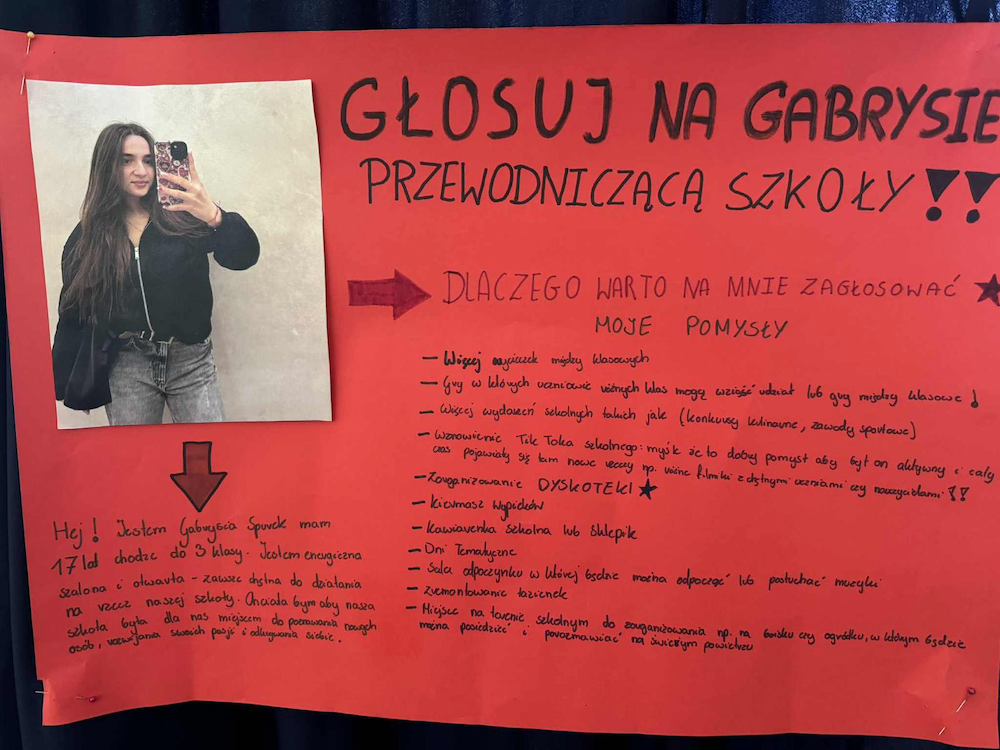 GŁOSUJ NA GABRYSIE
PRZEWODNICZĄCĄ SZKOŁY !!
DLACZEGO WARTO NA MNIE ZAGŁOSOWAĆ
MOJE POMYSŁY
— Więcej wycieczek między klasowych
— Gry w których uczniowie różnych klas mogą wziąść udział lub gry między klasowe !
— Więcej wydarzeń szkolnych takich jak (konkursy kulinarne, zawody sportowe)
— Wznowienie Tik Toka szkolnego: myślę że to dobry pomysł aby był on aktywny i cały
czas pojawiały się tam nowe rzeczy np. różne filmiki z chętnymi uczniami czy nauczycielami !!
— Zorganizowanie DYSKOTEKI
— Kiermasz wypieków
— Kawiarenka szkolna lub sklepik
— Dni Tematyczne
— Sala odpoczynku w której będzie można odpocząć lub posłuchać muzyki
— zremontowanie łazienek
— Miejsce na terenie szkolnym do zorganizowania np. na boisku czy ogródku, w którym będzie
można posiedzieć i porozmawiać na świeżym powietrzu
Hej ! Jestem Gabrysia Spurek mam
17 lat chodze do 3 klasy. Jestem energiczna
szalona i otwarta – zawsze chętna do działania
na rzecz naszej szkoły. Chciała bym aby nasza
szkoła była dla nas miejscem do poznawania nowych
osób, rozwijania swoich pasji i odkrywania siebie.